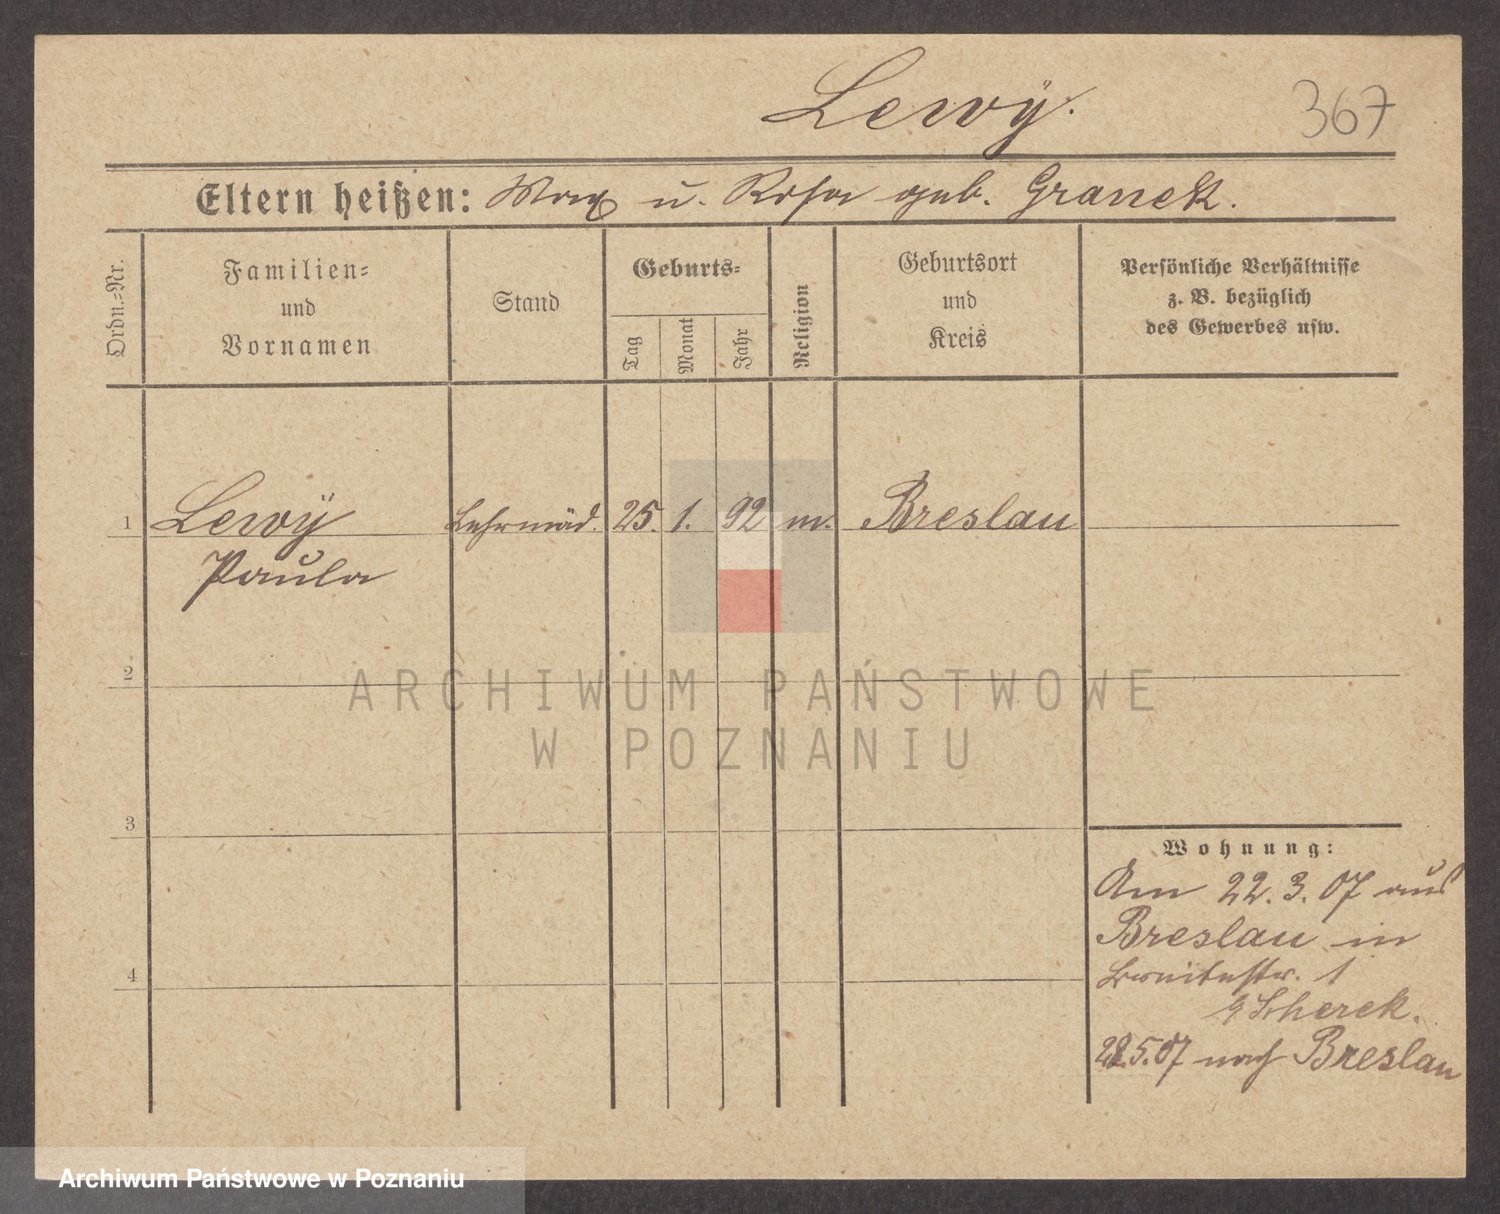 Lewÿ.
367
Eltern heißen: Max u. Rosa geb. Graneck.
Ordn.=Nr.
Familien=
und
Vornamen
Stand
Geburts=
Tag
Monat
Jahr
Religion
Geburtsort
und
Kreis
Persönliche Verhältnisse
z. B. bezüglich
des Gewerbes usw.
1 Lewÿ Lehrmäd. 25. 1. 92 m. Breslau
Paula
2
3
4
Wohnung:
Am 22.3.07 aus
Breslau in
Breitestr. 1
Scherek.
5.07 nach Breslau
ARCHIWUM PAŃSTWOWE
W POZNANIU
Archiwum Państwowe w Poznaniu